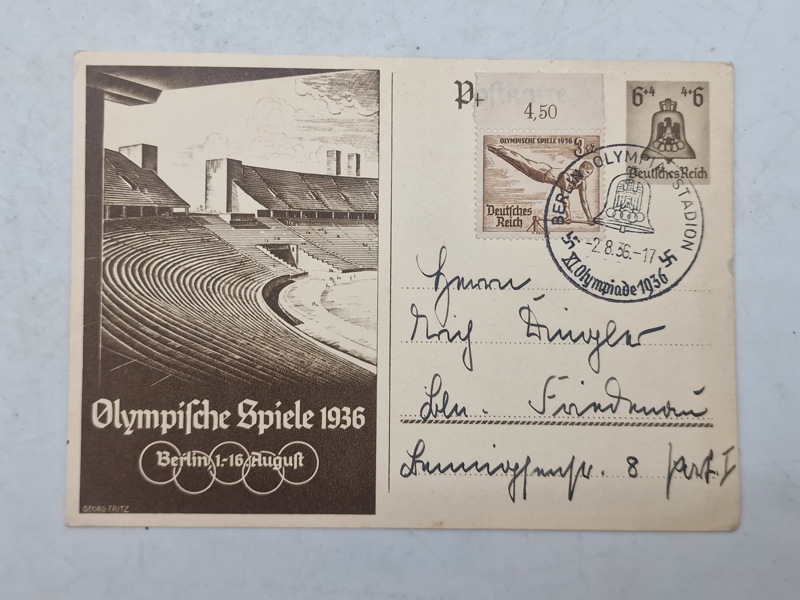 Olympische Spiele 1936
Berlin 1.-16. August
GEORG FRITZ
Postkarte
4,50
OLYMPISCHE SPIELE 1936
Deutsches
Reich
6+4 4+6
Deutsches Reich
BERLIN OLYMPIA-STADION
-2.8.36.-17
XI. Olympiade 1936
Herrn
Dingler
Bln. Friedenau
Bennigsenstr. 8